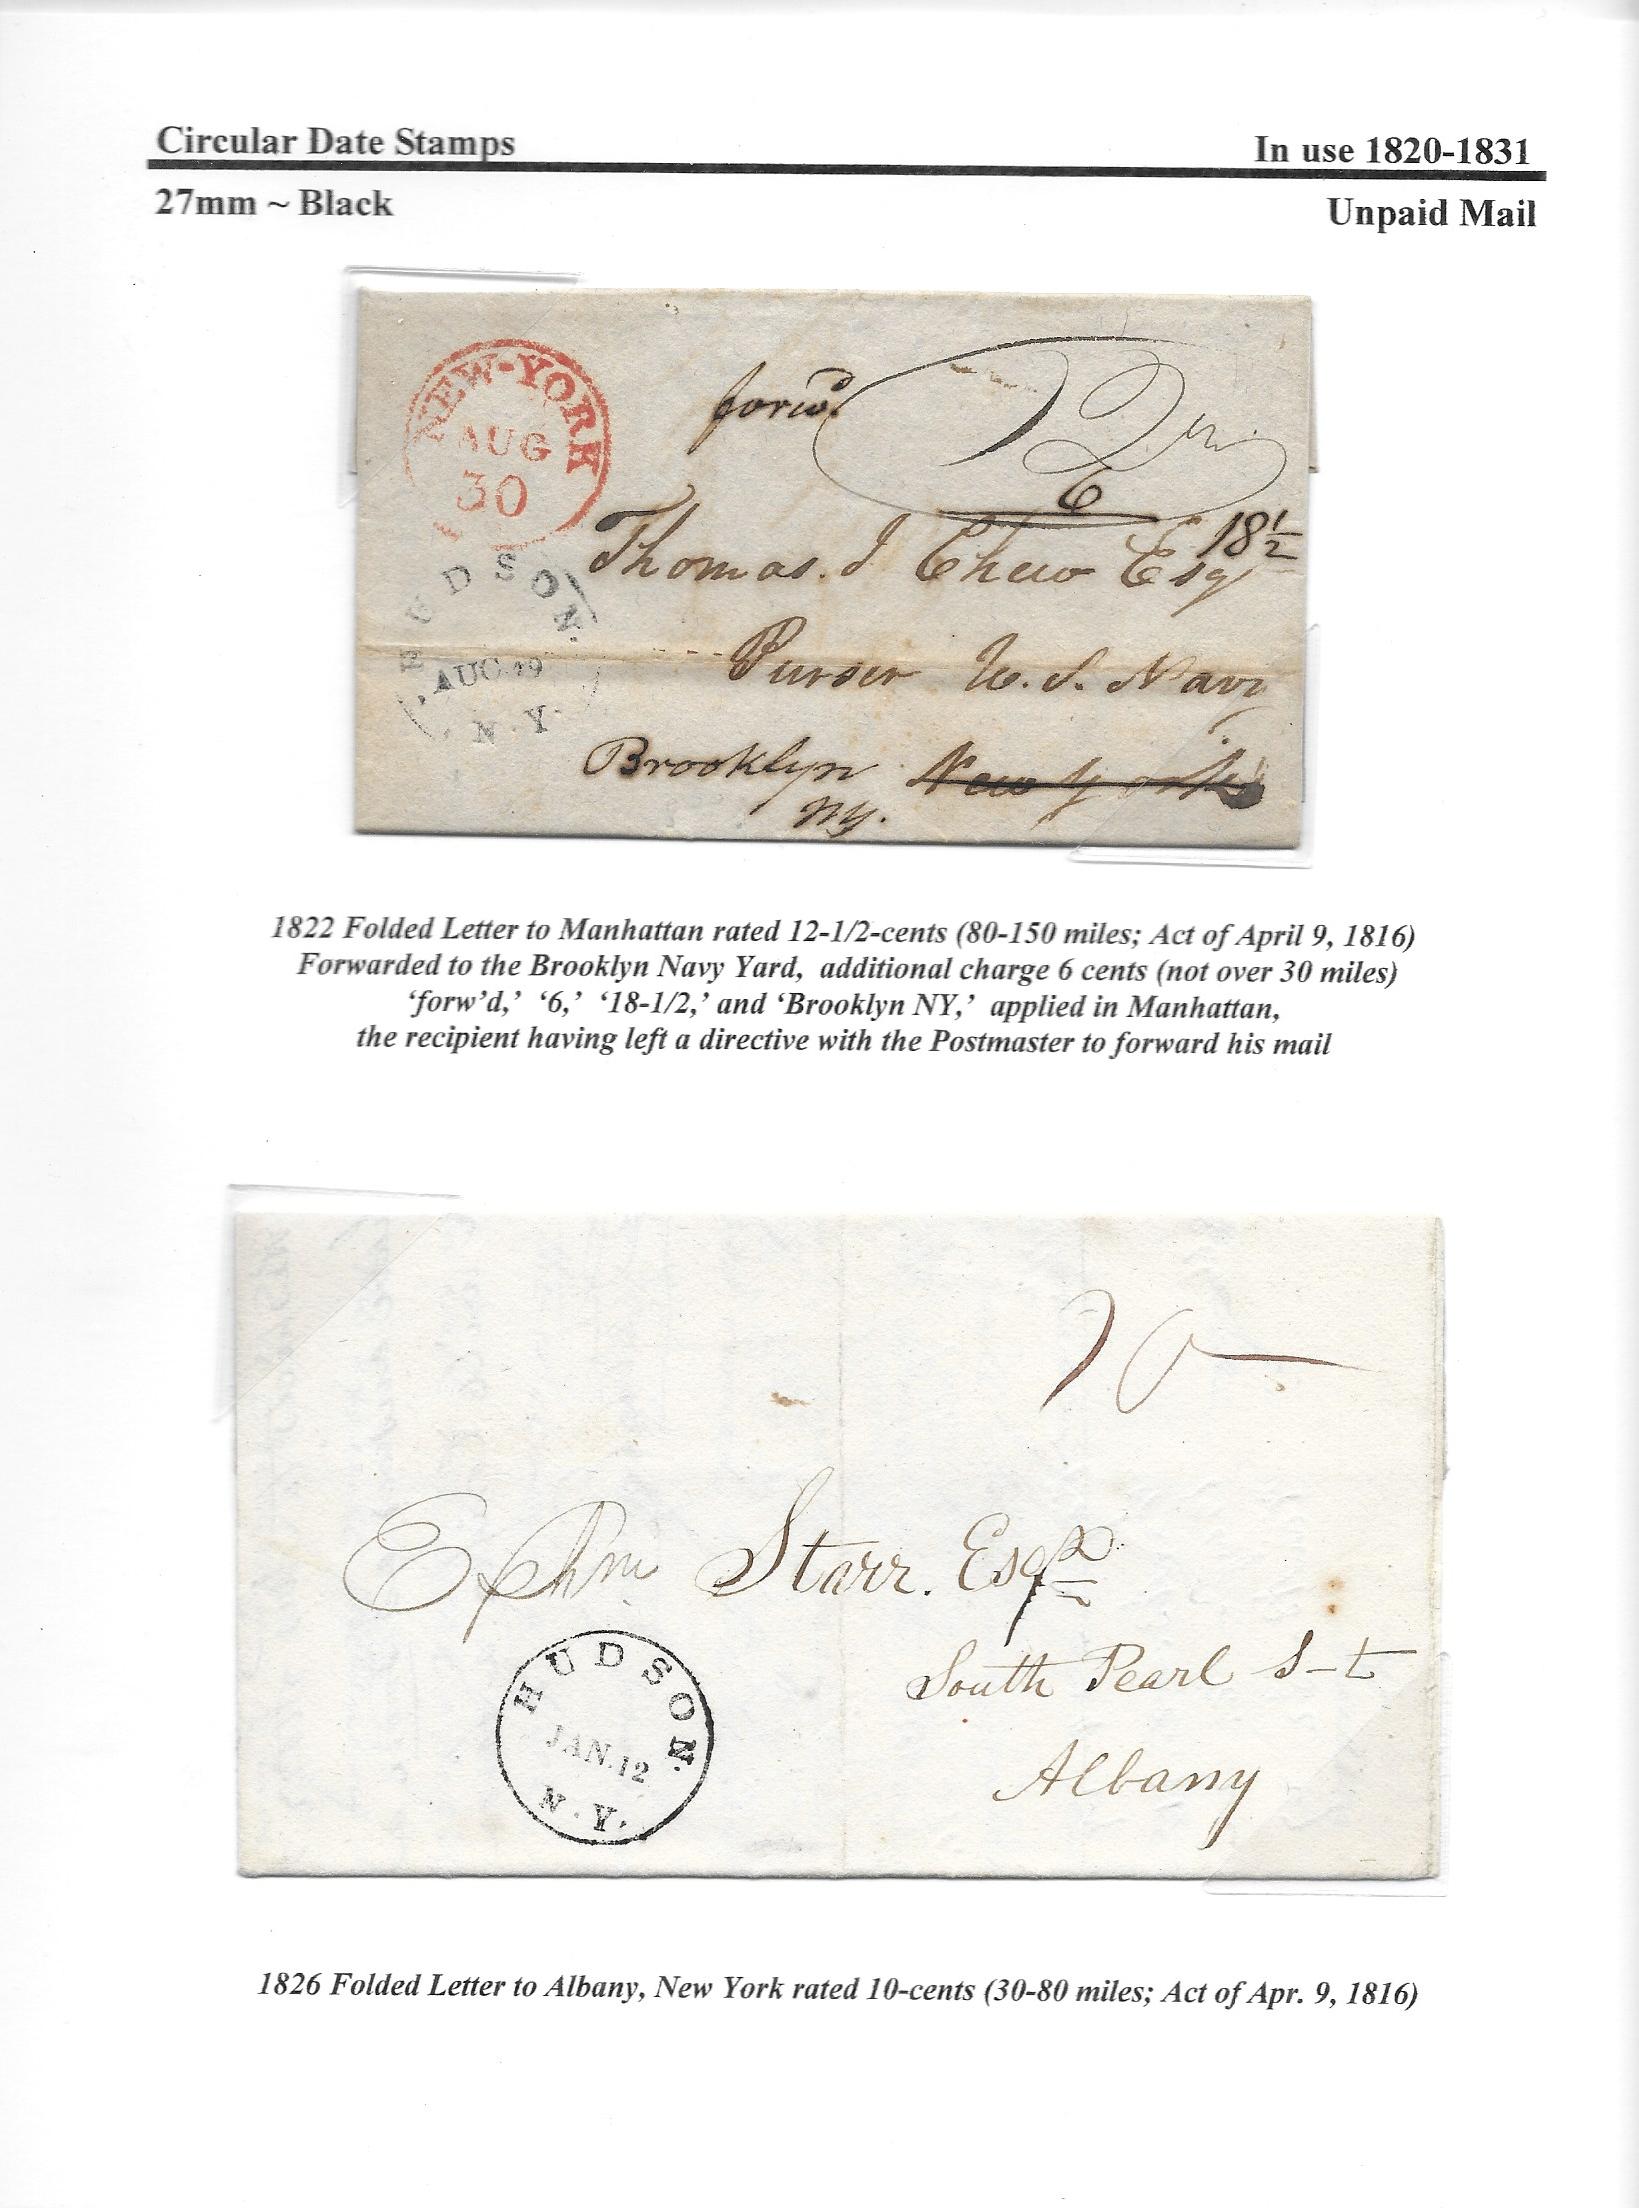 Circular Date Stamps
In use 1820-1831
27mm ~ Black
Unpaid Mail
NEW-YORK
AUG
30
forwd.
12½
6
18½
HUDSON.
AUG.
N.Y.
Thomas. J Chew Esqr
Purser U.S. Navy
Brooklyn New York
NY.
1822 Folded Letter to Manhattan rated 12-1/2-cents (80-150 miles; Act of April 9, 1816)
Forwarded to the Brooklyn Navy Yard, additional charge 6 cents (not over 30 miles)
‘forw’d,’ ‘6,’ ‘18-1/2,’ and ‘Brooklyn NY,’ applied in Manhattan,
the recipient having left a directive with the Postmaster to forward his mail
10
Ephm Starr. Esqr
South Pearl S-t
Albany
HUDSON.
JAN.12
N.Y.
1826 Folded Letter to Albany, New York rated 10-cents (30-80 miles; Act of Apr. 9, 1816)